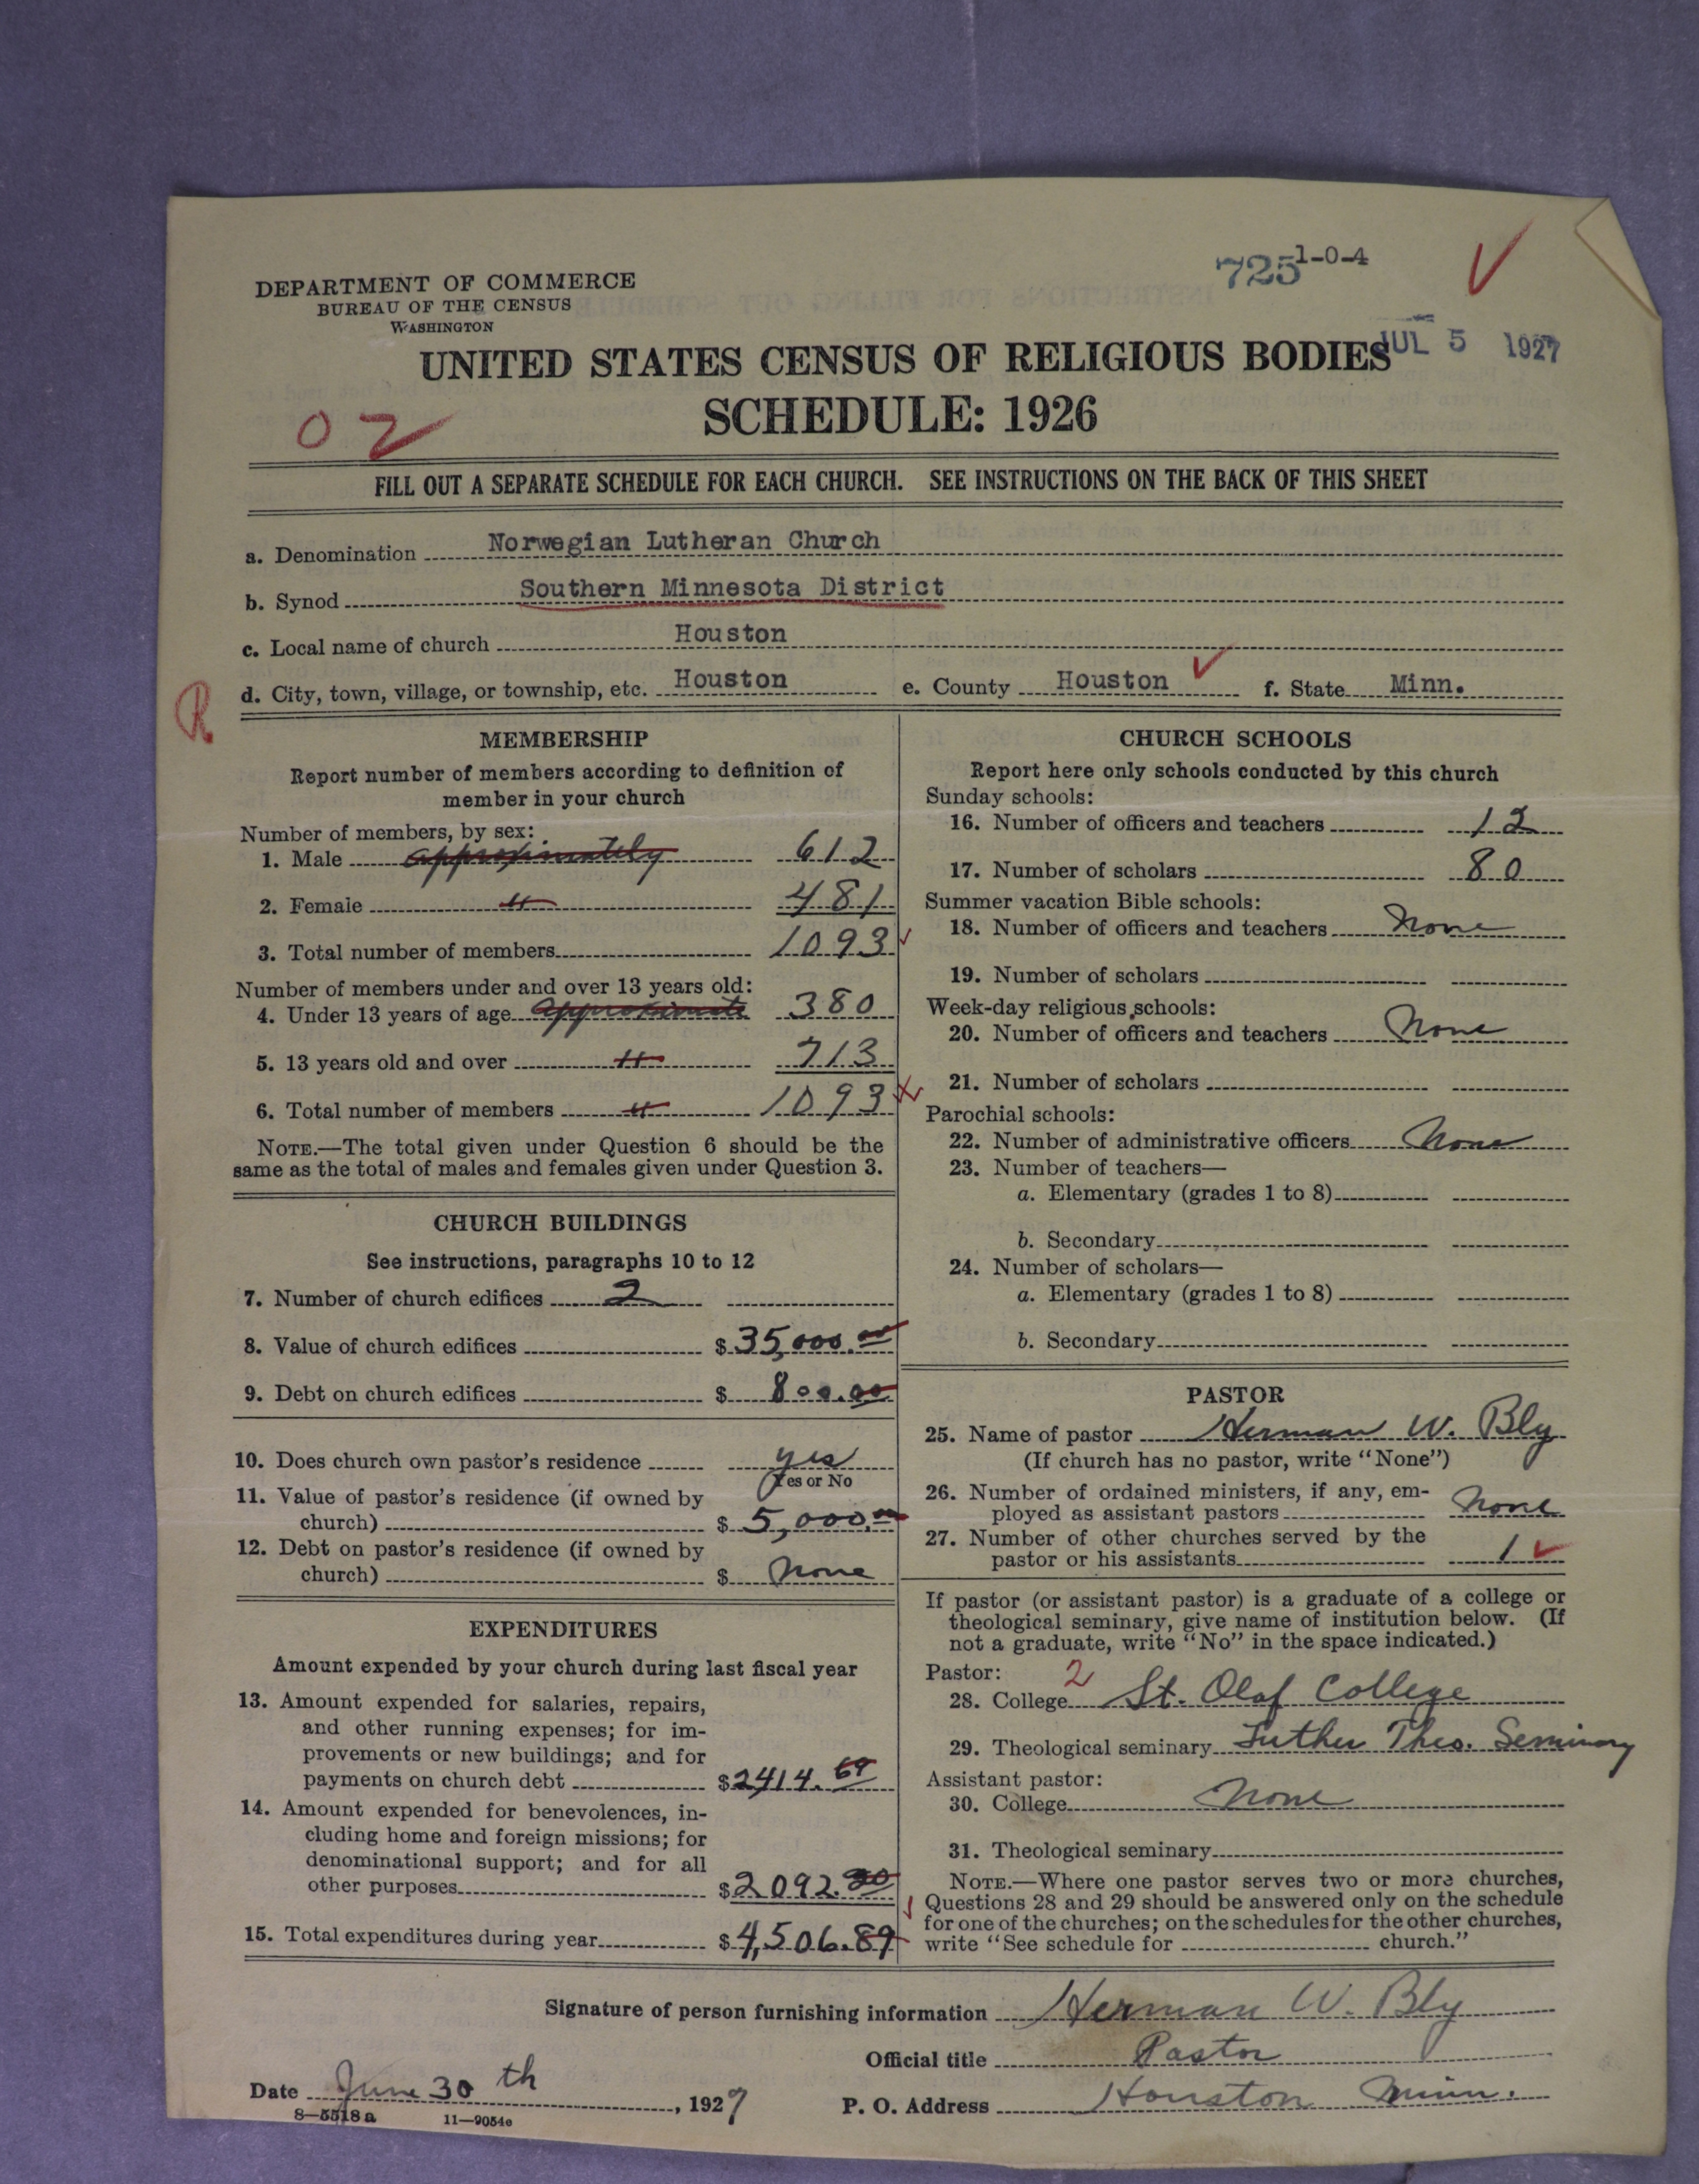 DEPARTMENT OF COMMERCE
BUREAU OF THE CENSUS
WASHINGTON
725 1-0-4
UNITED STATES CENSUS OF RELIGIOUS BODIES
JUL 5 1927
SCHEDULE: 1926
02
FILL OUT A SEPARATE SCHEDULE FOR EACH CHURCH. SEE INSTRUCTIONS ON THE BACK OF THIS SHEET
a. Denomination Norwegian Lutheran Church
b. Synod Southern Minnesota District
c. Local name of church Houston
R
d. City, town, village, or township, etc. Houston e. County Houston f. State Minn.
MEMBERSHIP
Report number of members according to definition of
member in your church
Number of members, by sex:
1. Male approximately 612
2. Female " 481
3. Total number of members 1093
Number of members under and over 13 years old:
4. Under 13 years of age approximate 380
5. 13 years old and over " 713
6. Total number of members " 1093
NOTE.—The total given under Question 6 should be the
same as the total of males and females given under Question 3.
CHURCH BUILDINGS
See instructions, paragraphs 10 to 12
7. Number of church edifices 2
8. Value of church edifices $35,000.00
9. Debt on church edifices $ 800.00
10. Does church own pastor's residence yes
(Yes or No
11. Value of pastor's residence (if owned by
church) $ 5,000.00
12. Debt on pastor's residence (if owned by
church) $ None
EXPENDITURES
Amount expended by your church during last fiscal year
13. Amount expended for salaries, repairs,
and other running expenses; for im-
provements or new buildings; and for
payments on church debt $2414.69
14. Amount expended for benevolences, in-
cluding home and foreign missions; for
denominational support; and for all
other purposes $2092.20
15. Total expenditures during year $4,506.89
CHURCH SCHOOLS
Report here only schools conducted by this church
Sunday schools:
16. Number of officers and teachers 12
17. Number of scholars 80
Summer vacation Bible schools:
18. Number of officers and teachers None
19. Number of scholars
Week-day religious schools:
20. Number of officers and teachers None
21. Number of scholars
Parochial schools:
22. Number of administrative officers None
23. Number of teachers—
a. Elementary (grades 1 to 8)
b. Secondary
24. Number of scholars—
a. Elementary (grades 1 to 8)
b. Secondary
PASTOR
25. Name of pastor Herman W. Bly
(If church has no pastor, write "None")
26. Number of ordained ministers, if any, em-
ployed as assistant pastors None
27. Number of other churches served by the
pastor or his assistants 1
If pastor (or assistant pastor) is a graduate of a college or
theological seminary, give name of institution below. (If
not a graduate, write "No" in the space indicated.)
Pastor: 2
28. College St. Olaf College
29. Theological seminary Luther Theo. Seminary
Assistant pastor:
30. College None
31. Theological seminary
NOTE.—Where one pastor serves two or more churches,
Questions 28 and 29 should be answered only on the schedule
for one of the churches; on the schedules for the other churches,
write "See schedule for church."
Signature of person furnishing information Herman W. Bly
Official title Pastor
Date June 30th, 1927
P. O. Address Houston Minn.
8—5518a 11—9054e